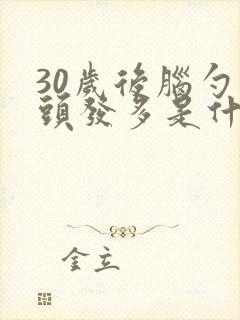 30歲後腦勺
頭發多是什
金立